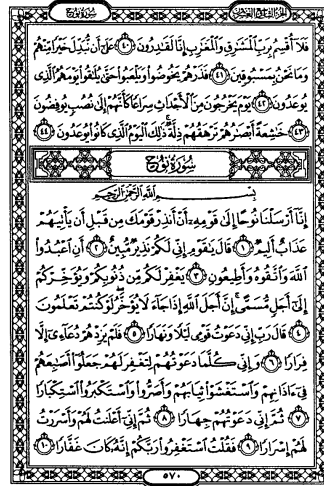 الجزء التاسع والعشرون سورة نوح
فَلَا أُقْسِمُ بِرَبِّ الْمَشَارِقِ وَالْمَغَارِبِ إِنَّا لَقَادِرُونَ ٤٠ عَلَىٰ أَن نُّبَدِّلَ خَيْرًا مِّنْهُمْ
وَمَا نَحْنُ بِمَسْبُوقِينَ ٤١ فَذَرْهُمْ يَخُوضُوا وَيَلْعَبُوا حَتَّىٰ يُلَاقُوا يَوْمَهُمُ الَّذِي
يُوعَدُونَ ٤٢ يَوْمَ يَخْرُجُونَ مِنَ الْأَجْدَاثِ سِرَاعًا كَأَنَّهُمْ إِلَىٰ نُصُبٍ يُوفِضُونَ
٤٣ خَاشِعَةً أَبْصَارُهُمْ تَرْهَقُهُمْ ذِلَّةٌ ذَٰلِكَ الْيَوْمُ الَّذِي كَانُوا يُوعَدُونَ ٤٤
سُورَةُ نُوحٍ
بِسْمِ اللَّهِ الرَّحْمَٰنِ الرَّحِيمِ
إِنَّا أَرْسَلْنَا نُوحًا إِلَىٰ قَوْمِهِ أَنْ أَنذِرْ قَوْمَكَ مِن قَبْلِ أَن يَأْتِيَهُمْ
عَذَابٌ أَلِيمٌ ١ قَالَ يَا قَوْمِ إِنِّي لَكُمْ نَذِيرٌ مُّبِينٌ ٢ أَنِ اعْبُدُوا
اللَّهَ وَاتَّقُوهُ وَأَطِيعُونِ ٣ يَغْفِرْ لَكُم مِّن ذُنُوبِكُمْ وَيُؤَخِّرْكُمْ
إِلَىٰ أَجَلٍ مُّسَمًّى إِنَّ أَجَلَ اللَّهِ إِذَا جَاءَ لَا يُؤَخَّرُ لَوْ كُنتُمْ تَعْلَمُونَ
٤ قَالَ رَبِّ إِنِّي دَعَوْتُ قَوْمِي لَيْلًا وَنَهَارًا ٥ فَلَمْ يَزِدْهُمْ دُعَائِي إِلَّا
فِرَارًا ٦ وَإِنِّي كُلَّمَا دَعَوْتُهُمْ لِتَغْفِرَ لَهُمْ جَعَلُوا أَصَابِعَهُمْ
فِي آذَانِهِمْ وَاسْتَغْشَوْا ثِيَابَهُمْ وَأَصَرُّوا وَاسْتَكْبَرُوا اسْتِكْبَارًا
٧ ثُمَّ إِنِّي دَعَوْتُهُمْ جِهَارًا ٨ ثُمَّ إِنِّي أَعْلَنتُ لَهُمْ وَأَسْرَرْتُ
لَهُمْ إِسْرَارًا ٩ فَقُلْتُ اسْتَغْفِرُوا رَبَّكُمْ إِنَّهُ كَانَ غَفَّارًا ١٠
٥٧٠